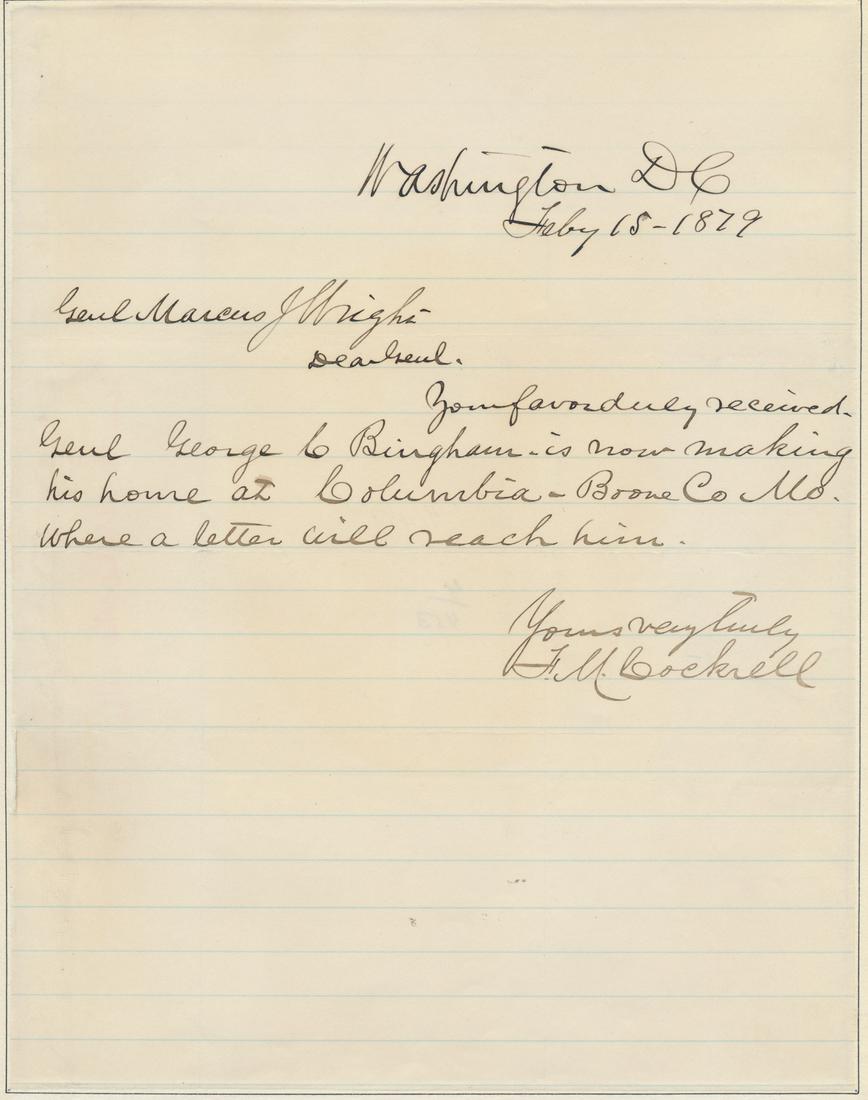 Washington D C
Feby 15 - 1879
Genl Marcus J Wright
Dear Genl.
Your favor duly received.
Genl George C Bingham - is now making
his home at Columbia - Boone Co Mo.
where a letter will reach him.
Yours very truly
F. M. Cockrell